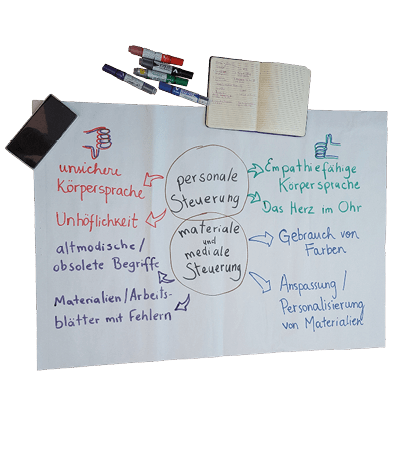 unsichere
Körpersprache
Unhöflichkeit
altmodische/
obsolete Begriffe
Materialien/Arbeits-
blätter mit Fehlern
personale
Steuerung
materiale
und
mediale
Steuerung
Empathiefähige
Körpersprache
Das Herz im Ohr
Gebrauch von
Farben
Anspassung/
Personalisierung
von Materialien